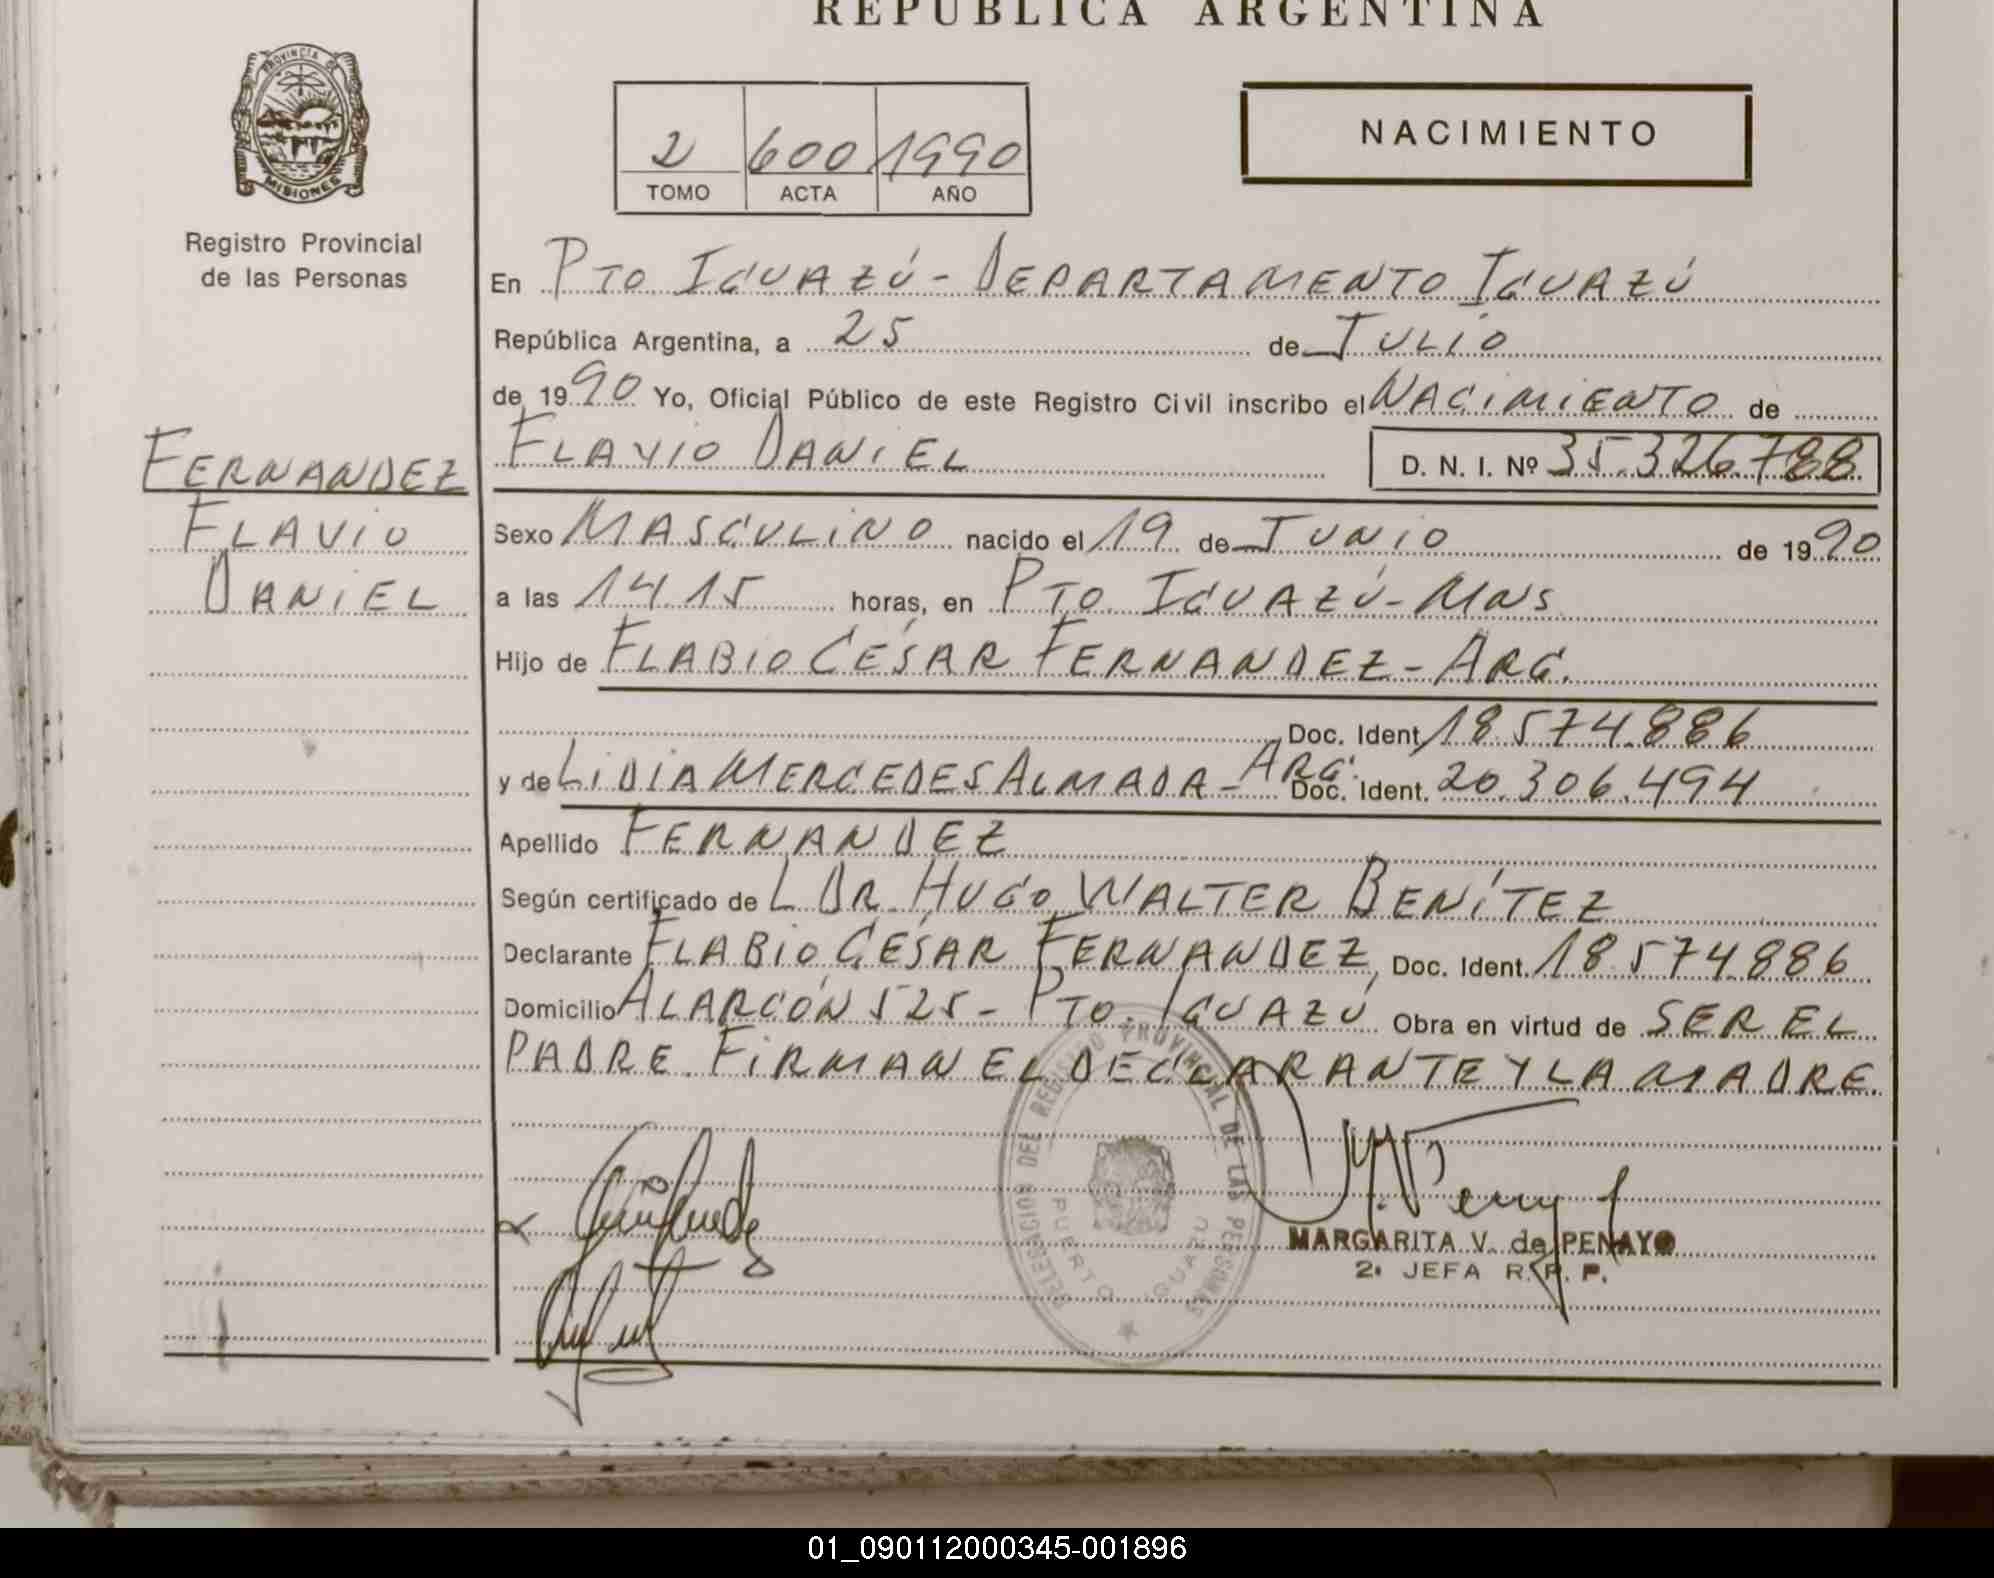 REPUBLICA ARGENTINA
PROVINCIA DE
MISIONES
Registro Provincial
de las Personas
2 600 1990
TOMO ACTA AÑO
NACIMIENTO
En PTO IGUAZÚ - DEPARTAMENTO IGUAZÚ
República Argentina, a 25 de JULIO
de 1990 Yo, Oficial Público de este Registro Civil inscribo el NACIMIENTO de
FERNANDEZ
FLAVIO
DANIEL
FLAVIO DANIEL D. N. I. Nº 35.326.788
Sexo MASCULINO nacido el 19 de JUNIO de 1990
a las 14.15 horas, en PTO. IGUAZÚ - MNS
Hijo de FLABIO CÉSAR FERNANDEZ - ARG.
Doc. Ident. 18.574.886
y de LIDIA MERCEDES ALMADA - ARG. Doc. Ident. 20.306.494
Apellido FERNANDEZ
Según certificado de L DR. HUGO WALTER BENÍTEZ
Declarante FLABIO CÉSAR FERNANDEZ, Doc. Ident. 18.574.886
Domicilio ALARCÓN 525 - PTO. IGUAZÚ Obra en virtud de SER EL
PADRE. FIRMAN EL DECLARANTE Y LA MADRE.
DELEGACION DEL REGISTRO PROVINCIAL DE LAS PERSONAS
PUERTO IGUAZU
MARGARITA V. de PENAYO
2ª JEFA R. P. P.
01_090112000345-001896